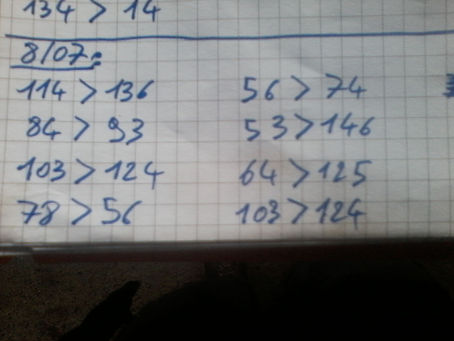 134 > 14
8/07:
114 > 136 56 > 74
84 > 93 53 > 146
103 > 124 64 > 125
78 > 56 103 > 124